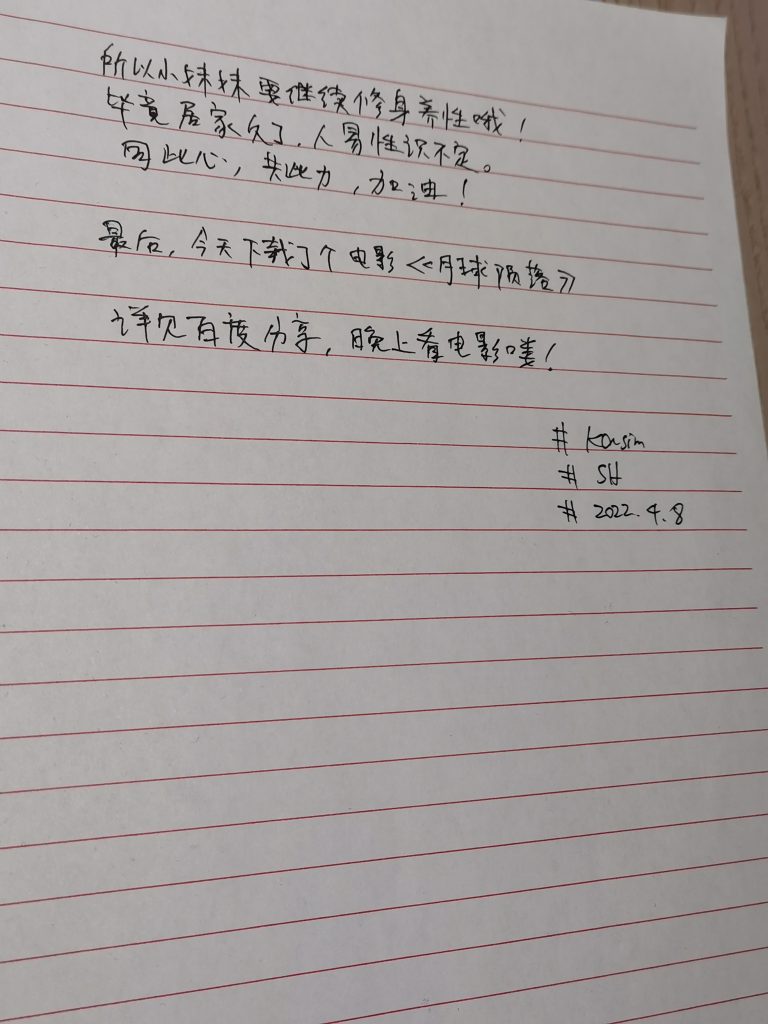 所以小妹妹要继续修身养性哦！
毕竟居家久了，人易性识不定。
因此心，共此力，加油！
最后，今天下载了个电影《月球陨落》
详见百度分享，晚上看电影喽！
# Konsim
# SH
# 2022.4.8